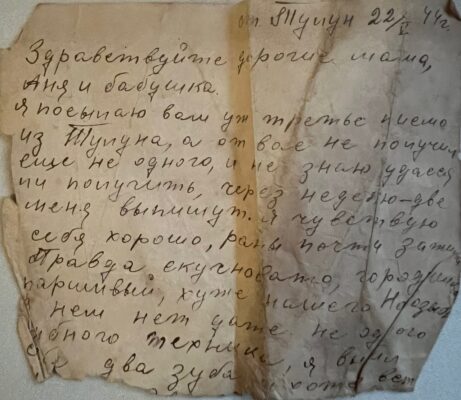 от Тулун 22/I 44 г.
Здравствуйте дорогие мама,
Аня и бабушка.
я посылаю вам уж третье письмо
из Тулуна, а от вас не получил
еще не одного, и не знаю удастся
ли получить, через неделю-две
меня выпишут. Я чувствую
себя хорошо, раны почти зажили
Правда скучновато, городишко
паршивый, хуже нашего
в нем нет даже не одного
зубного техника, я
два зуба хотя